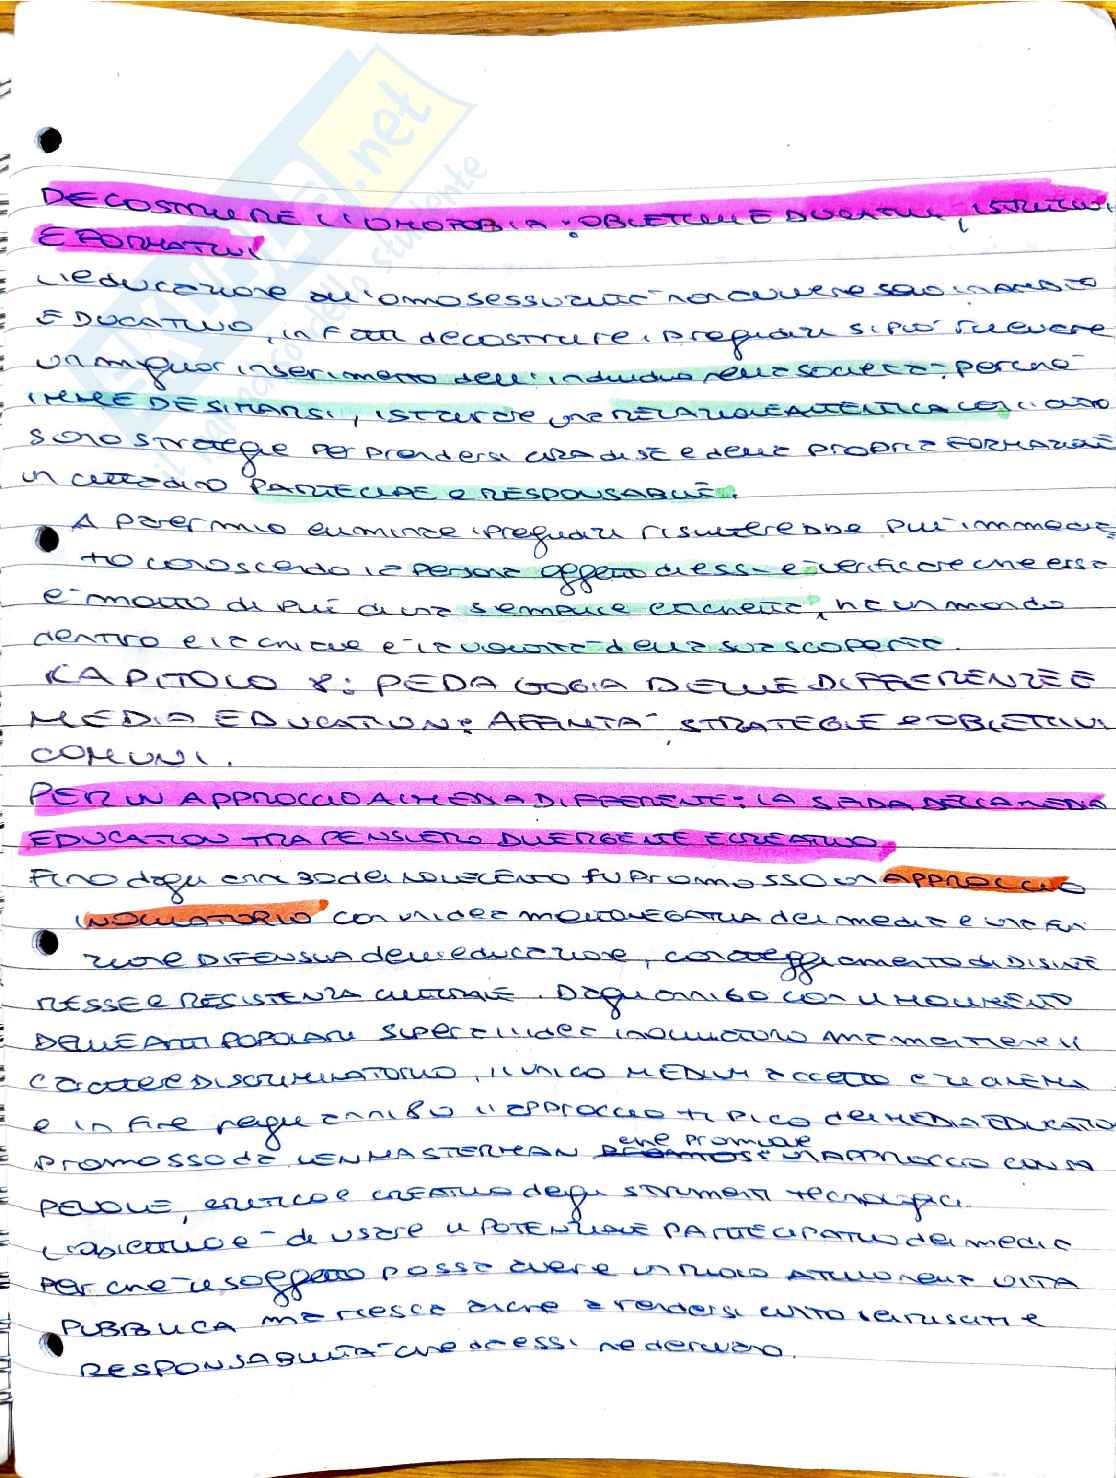 DECOSTRUIRE L'OMOFOBIA: OBIETTIVI EDUCATIVI, ISTRUTTIVI
E FORMATIVI
L'educazione all'omosessualità non avviene solo in AMBITO
EDUCATIVO, infatti decostruire i pregiudizi si può ricevere
un miglior inserimento dell'individuo nella società: perché
IMMEDESIMARSI, istituire una RELAZIONE AUTENTICA CON l'altro
sono strategie per prendersi cura di sé e della PROPRIA FORMAZIONE
in cittadino PARTECIPE e RESPONSABILE.
A parer mio eliminare i pregiudizi risulterebbe più immedia
to conoscendo la persona oggetto di essi e verificare che essa
è molto di più di una semplice etichetta, ha un mondo
dentro e la chiave è la volontà della sua scoperta.
CAPITOLO 8: PEDAGOGIA DELLE DIFFERENZE E
MEDIA EDUCATION: AFFINITÀ, STRATEGIE e OBIETTIVI
COMUNI.
PER UN APPROCCIO AI MEDIA DIFFERENTE: LA SFIDA DELLA MEDIA
EDUCATION TRA PENSIERO DIVERGENTE E CREATIVO
Fino dagli anni 30 del NOVECENTO fu promosso un APPROCCIO
INOCULATORIO con un'idea MOLTO NEGATIVA dei media e una fun
zione DIFENSIVA dell'educazione, con atteggiamento di DISINTE
RESSE e RESISTENZA CULTURALE. Dagli anni 60 con il MOVIMENTO
DELLE ARTI POPOLARI supera l'idea inoculatoria ma mantiene il
carattere DISCRIMINATORIO, l'unico MEDIUM accetto era il CINEMA
e infine negli anni 80 l'APPROCCIO tipico dei MEDIA EDUCATION
promosso da LEN MASTERMAN che promuove un APPROCCIO CONSA
PEVOLE, CRITICO e CREATIVO degli strumenti tecnologici.
L'obiettivo è di usare il POTENZIALE PARTECIPATIVO dei media
perché il soggetto possa avere un ruolo ATTIVO nella VITA
PUBBLICA ma riesca anche a rendersi conto dei rischi e
RESPONSABILITÀ che da essi ne derivano.
SKUOLA.net
il paradiso dello studente